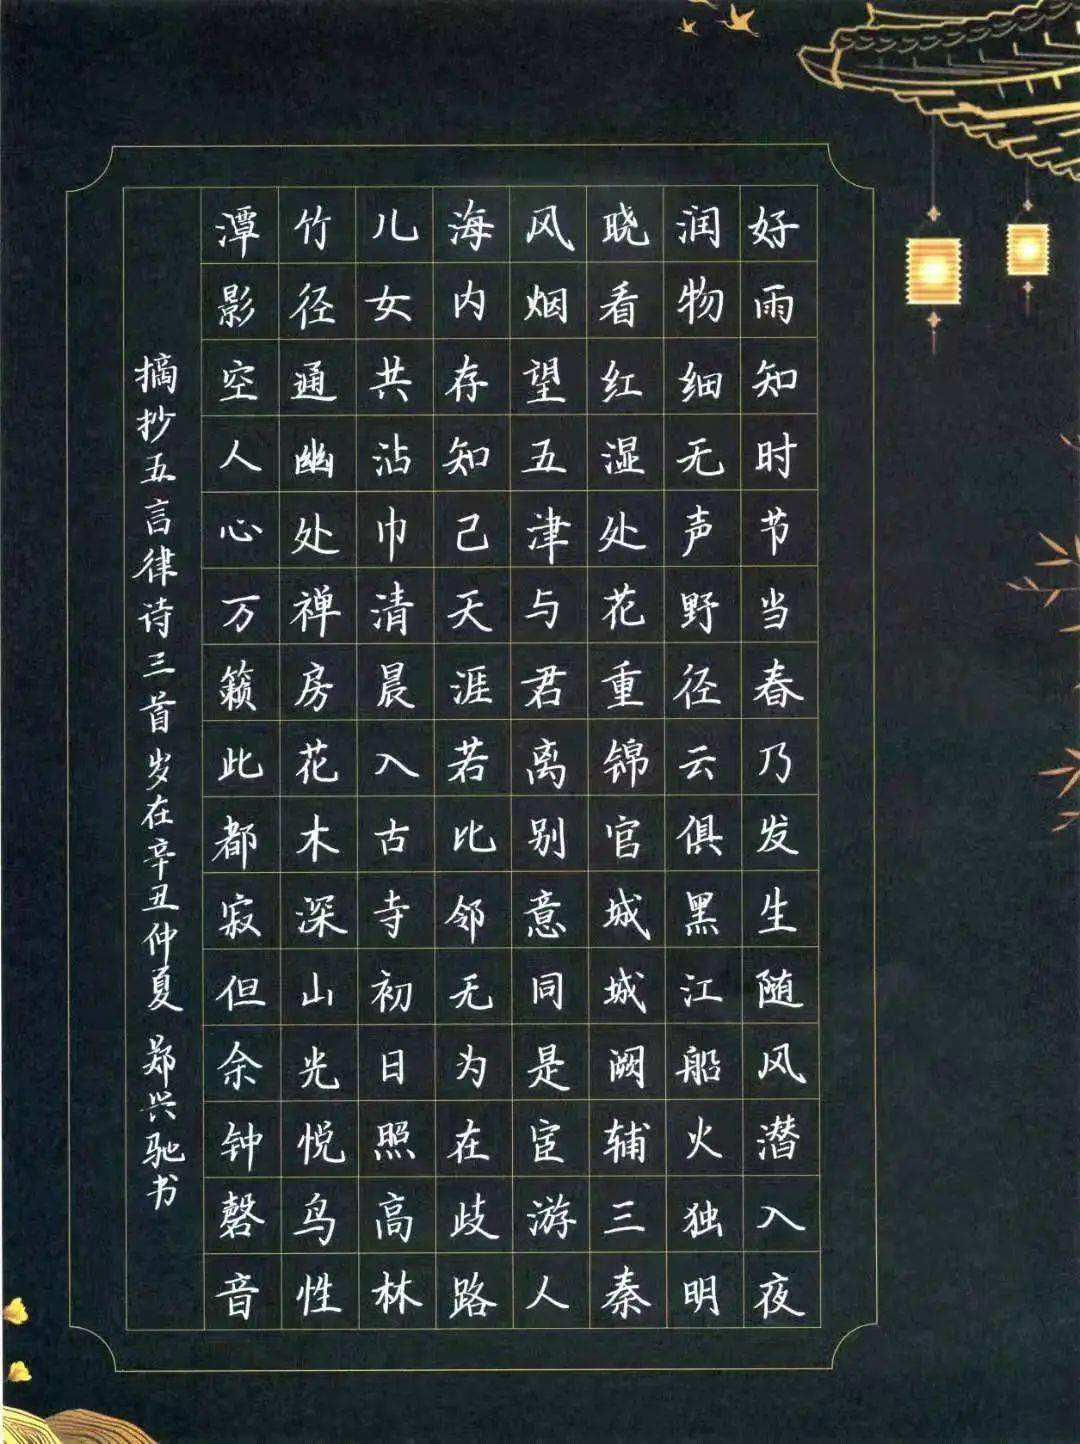 好雨知时节当春乃发生随风潜入夜
润物细无声野径云俱黑江船火独明
晓看红湿处花重锦官城城阙辅三秦
风烟望五津与君离别意同是宦游人
海内存知己天涯若比邻无为在歧路
儿女共沾巾清晨入古寺初日照高林
竹径通幽处禅房花木深山光悦鸟性
潭影空人心万籁此都寂但余钟磬音
摘抄五言律诗三首岁在辛丑仲夏 郑兴驰书